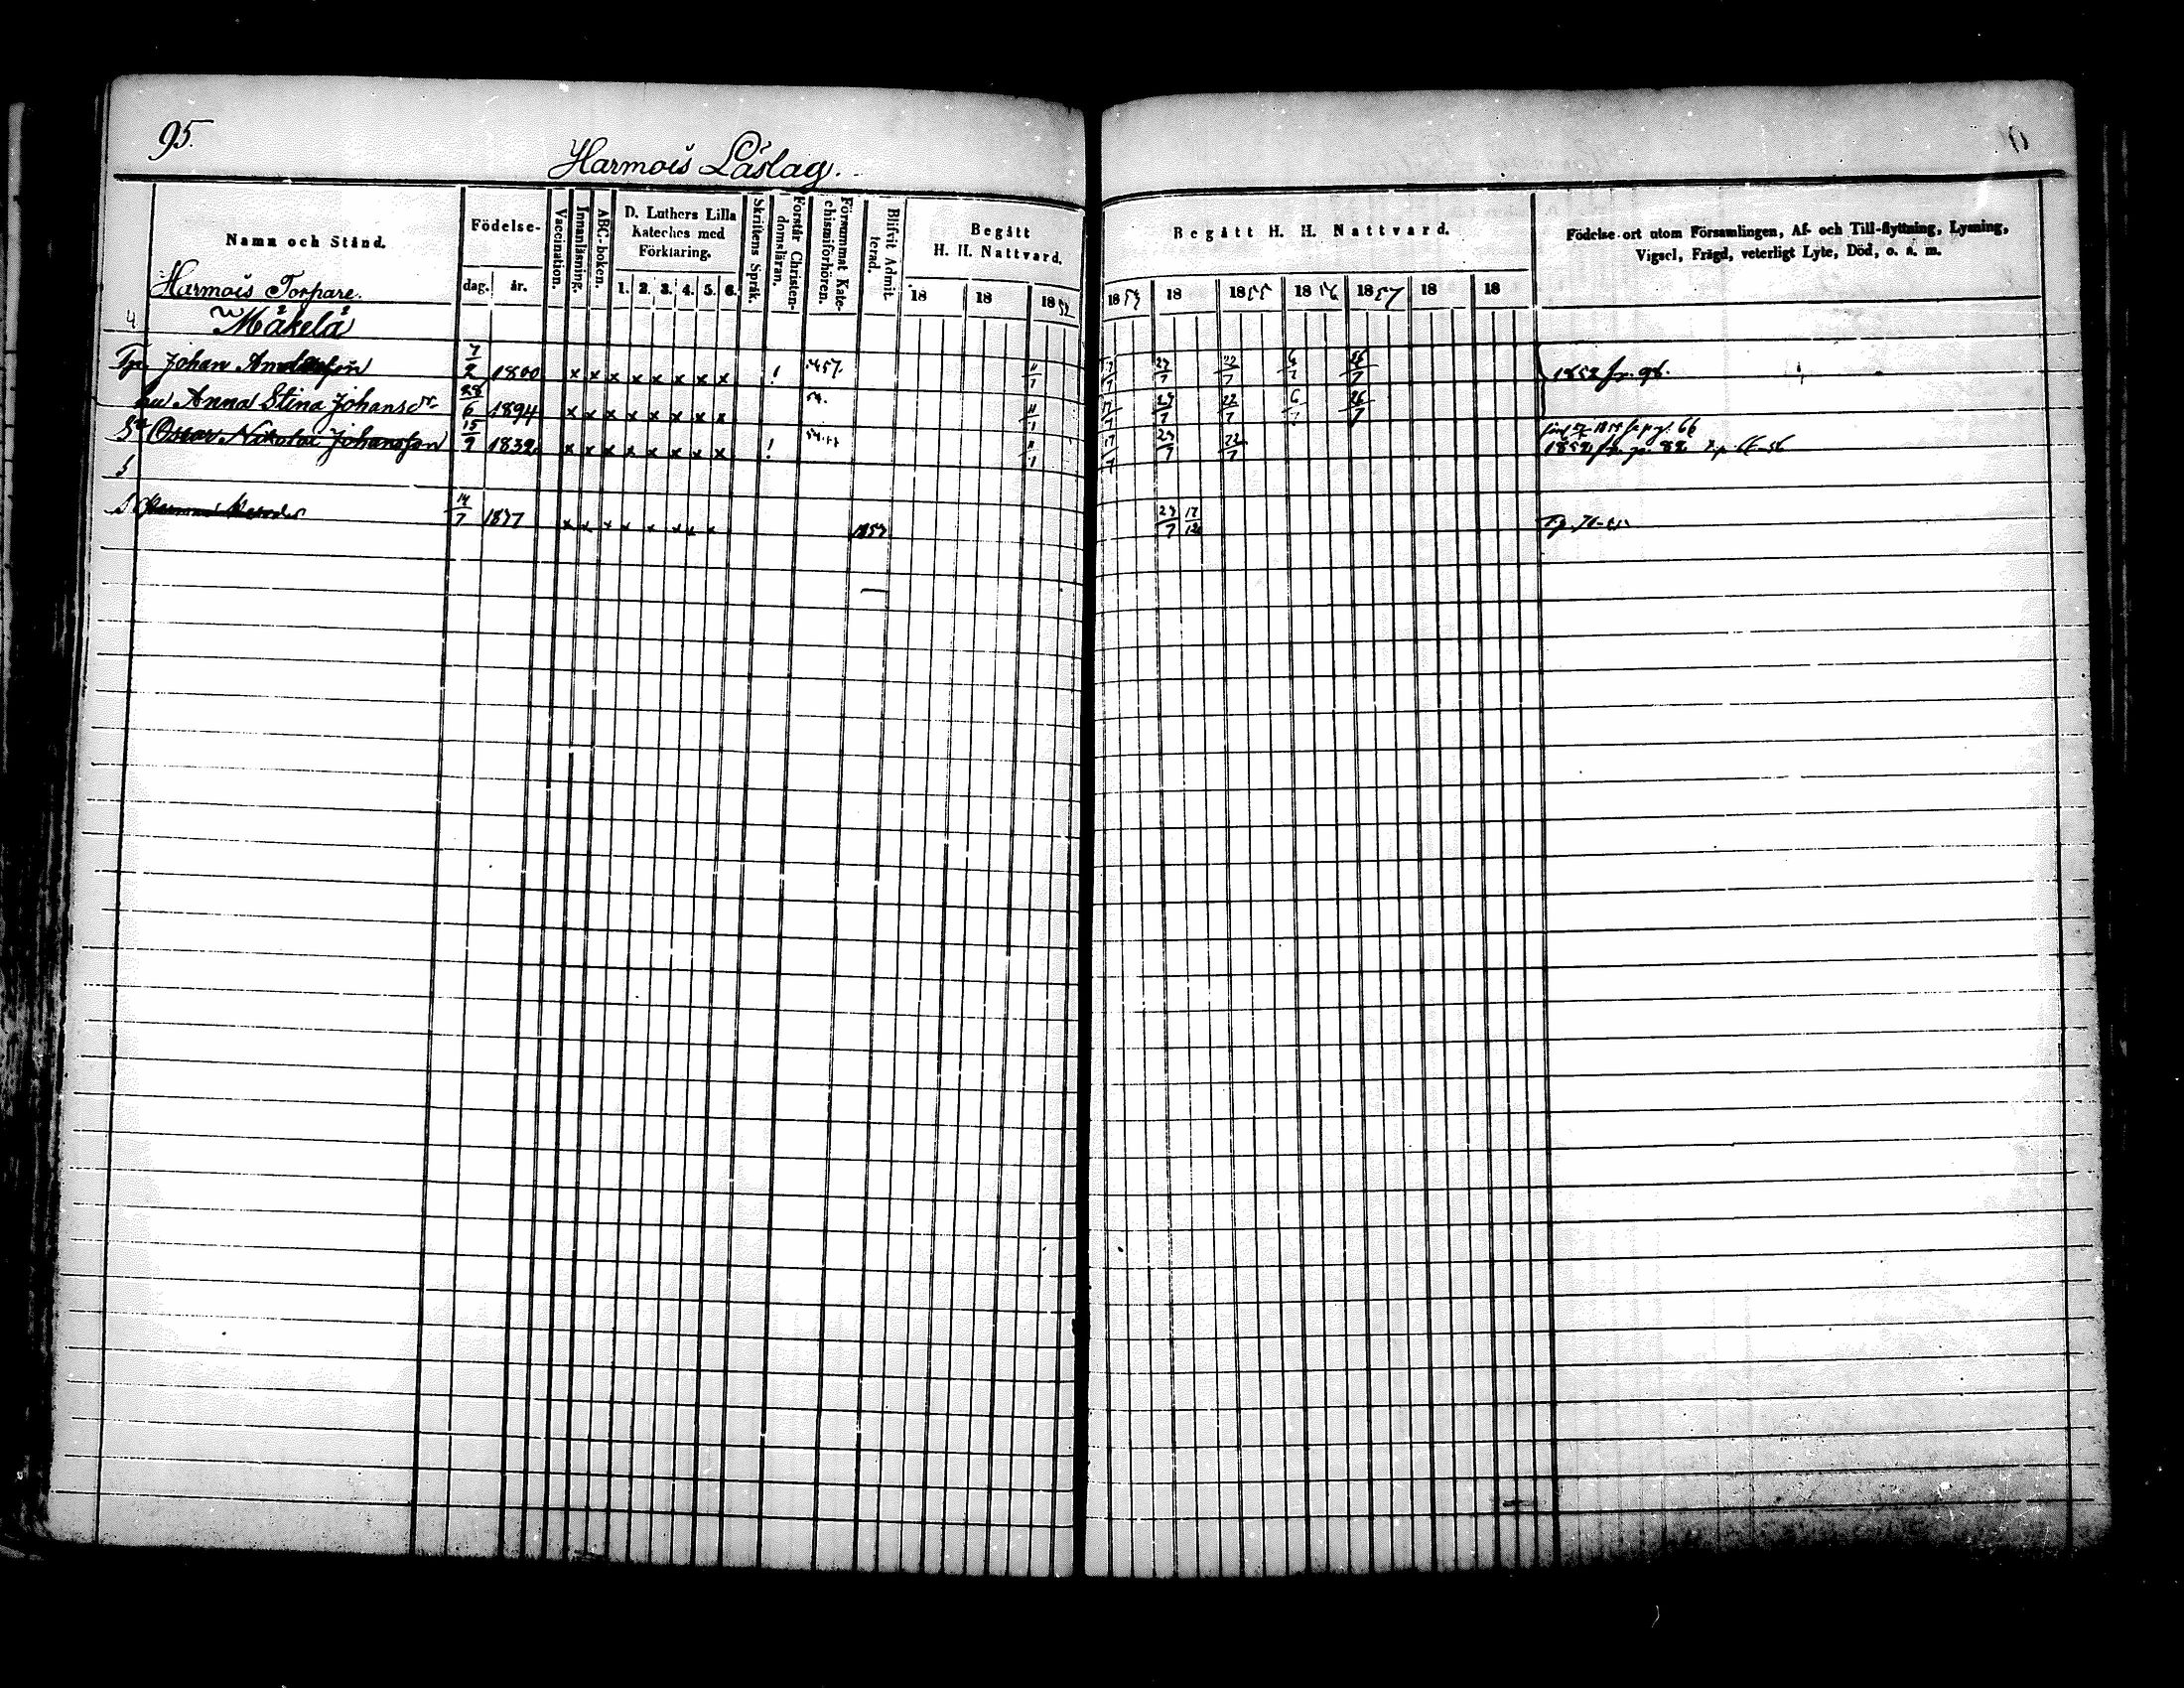 95.
Harmois Läslag.
Namn och Stånd.
Födelse-
dag. år.
Vaccination.
Innanläsning.
ABC-boken.
D. Luthers Lilla
Kateches med
Förklaring.
1. 2. 3. 4. 5. 6.
Skriftens Språk.
Förstår Christen-
domsläran.
Försummat Kate-
chismiförhören.
Blifvit Admit-
terad.
Begått
H. H. Nattvard.
18 18 1852
Begått H. H. Nattvard.
1853 18 1855 1856 1857 18 18
Födelse-ort utom Församlingen, Af- och Till-flyttning, Lysning,
Vigsel, Frägd, veterligt Lyte, Död, o. s. m.
Harmois Torpare.
4 Mäkelä
Johan 7/2 1800 x x x x x x x x ! 57. 11/7 17/7 23/7 22/7 6/7 26/7 1852 fr. 96.
hu Anna Stina Johansdr 28/6 1894 x x x x x x x x 54. 11/7 17/7 23/7 22/7 6/7 26/7
Oscar Nikolai Johansson 15/9 1832 x x x x x x x x ! 11/7 17/7 23/7 22/7 66
1852 fr. p. 82
14/7 1837 x x x x x x x x 1853 23/7 17/12